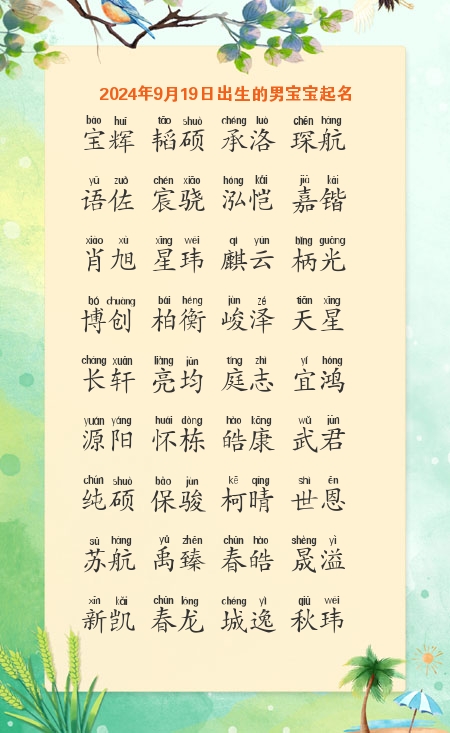 2024年9月19日出生的男宝宝起名
bǎo huī tāo shuò chéng luò chēn háng
宝辉 韬硕 承洛 琛航
yǔ zuǒ chén xiāo hóng kǎi jiā kǎi
语佐 宸骁 泓恺 嘉锴
xiào xù xīng wěi qí yún bǐng guāng
肖旭 星玮 麒云 柄光
bó chuàng bǎi héng jùn zé tiān xīng
博创 柏衡 峻泽 天星
cháng xuān liàng jūn tíng zhì yí hóng
长轩 亮均 庭志 宜鸿
yuán yáng huái dòng hào kāng wǔ jūn
源阳 怀栋 皓康 武君
chún shuò bǎo jùn kē qíng shì ēn
纯硕 保骏 柯晴 世恩
sū háng yǔ zhēn chūn hào shèng yì
苏航 禹臻 春皓 晟溢
xīn kǎi chūn lóng chéng yì qiū wěi
新凯 春龙 城逸 秋玮